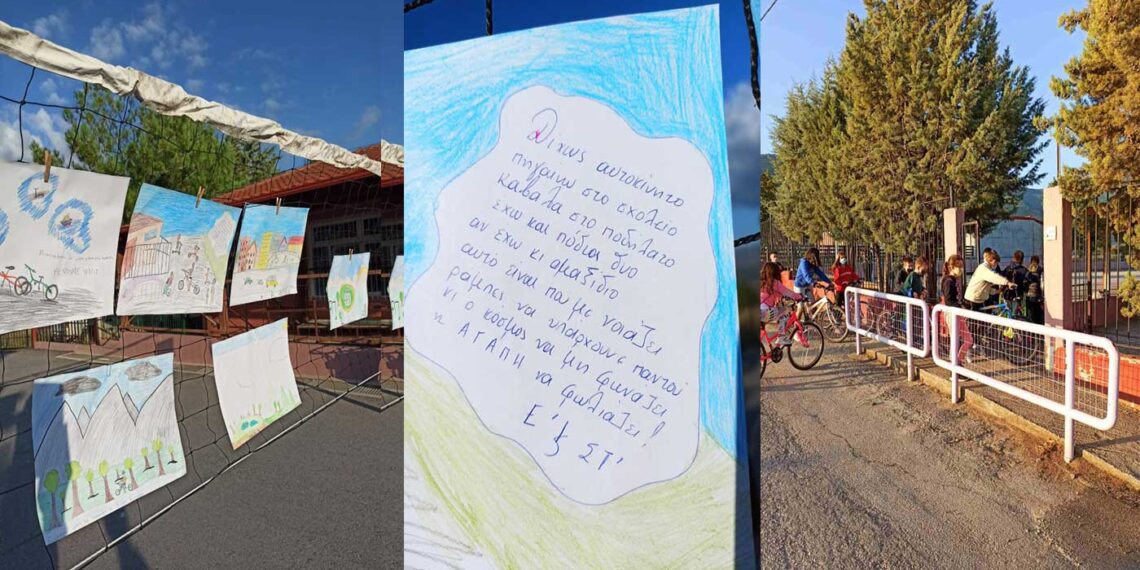 Δίχως αυτοκίνητο
πηγαίνω στο σχολείο
καβάλα στο ποδήλατο
έχω και πόδια δυο
αν έχω κι αμαξίδιο
αυτό είναι πα με νοιάζει
ράμπες να υπάρχουνε παντού
κι ο κόσμος να μη φωνάζει
η ΑΓΑΠΗ να φωλιάζει!
Ε' ξ ΣΤ'